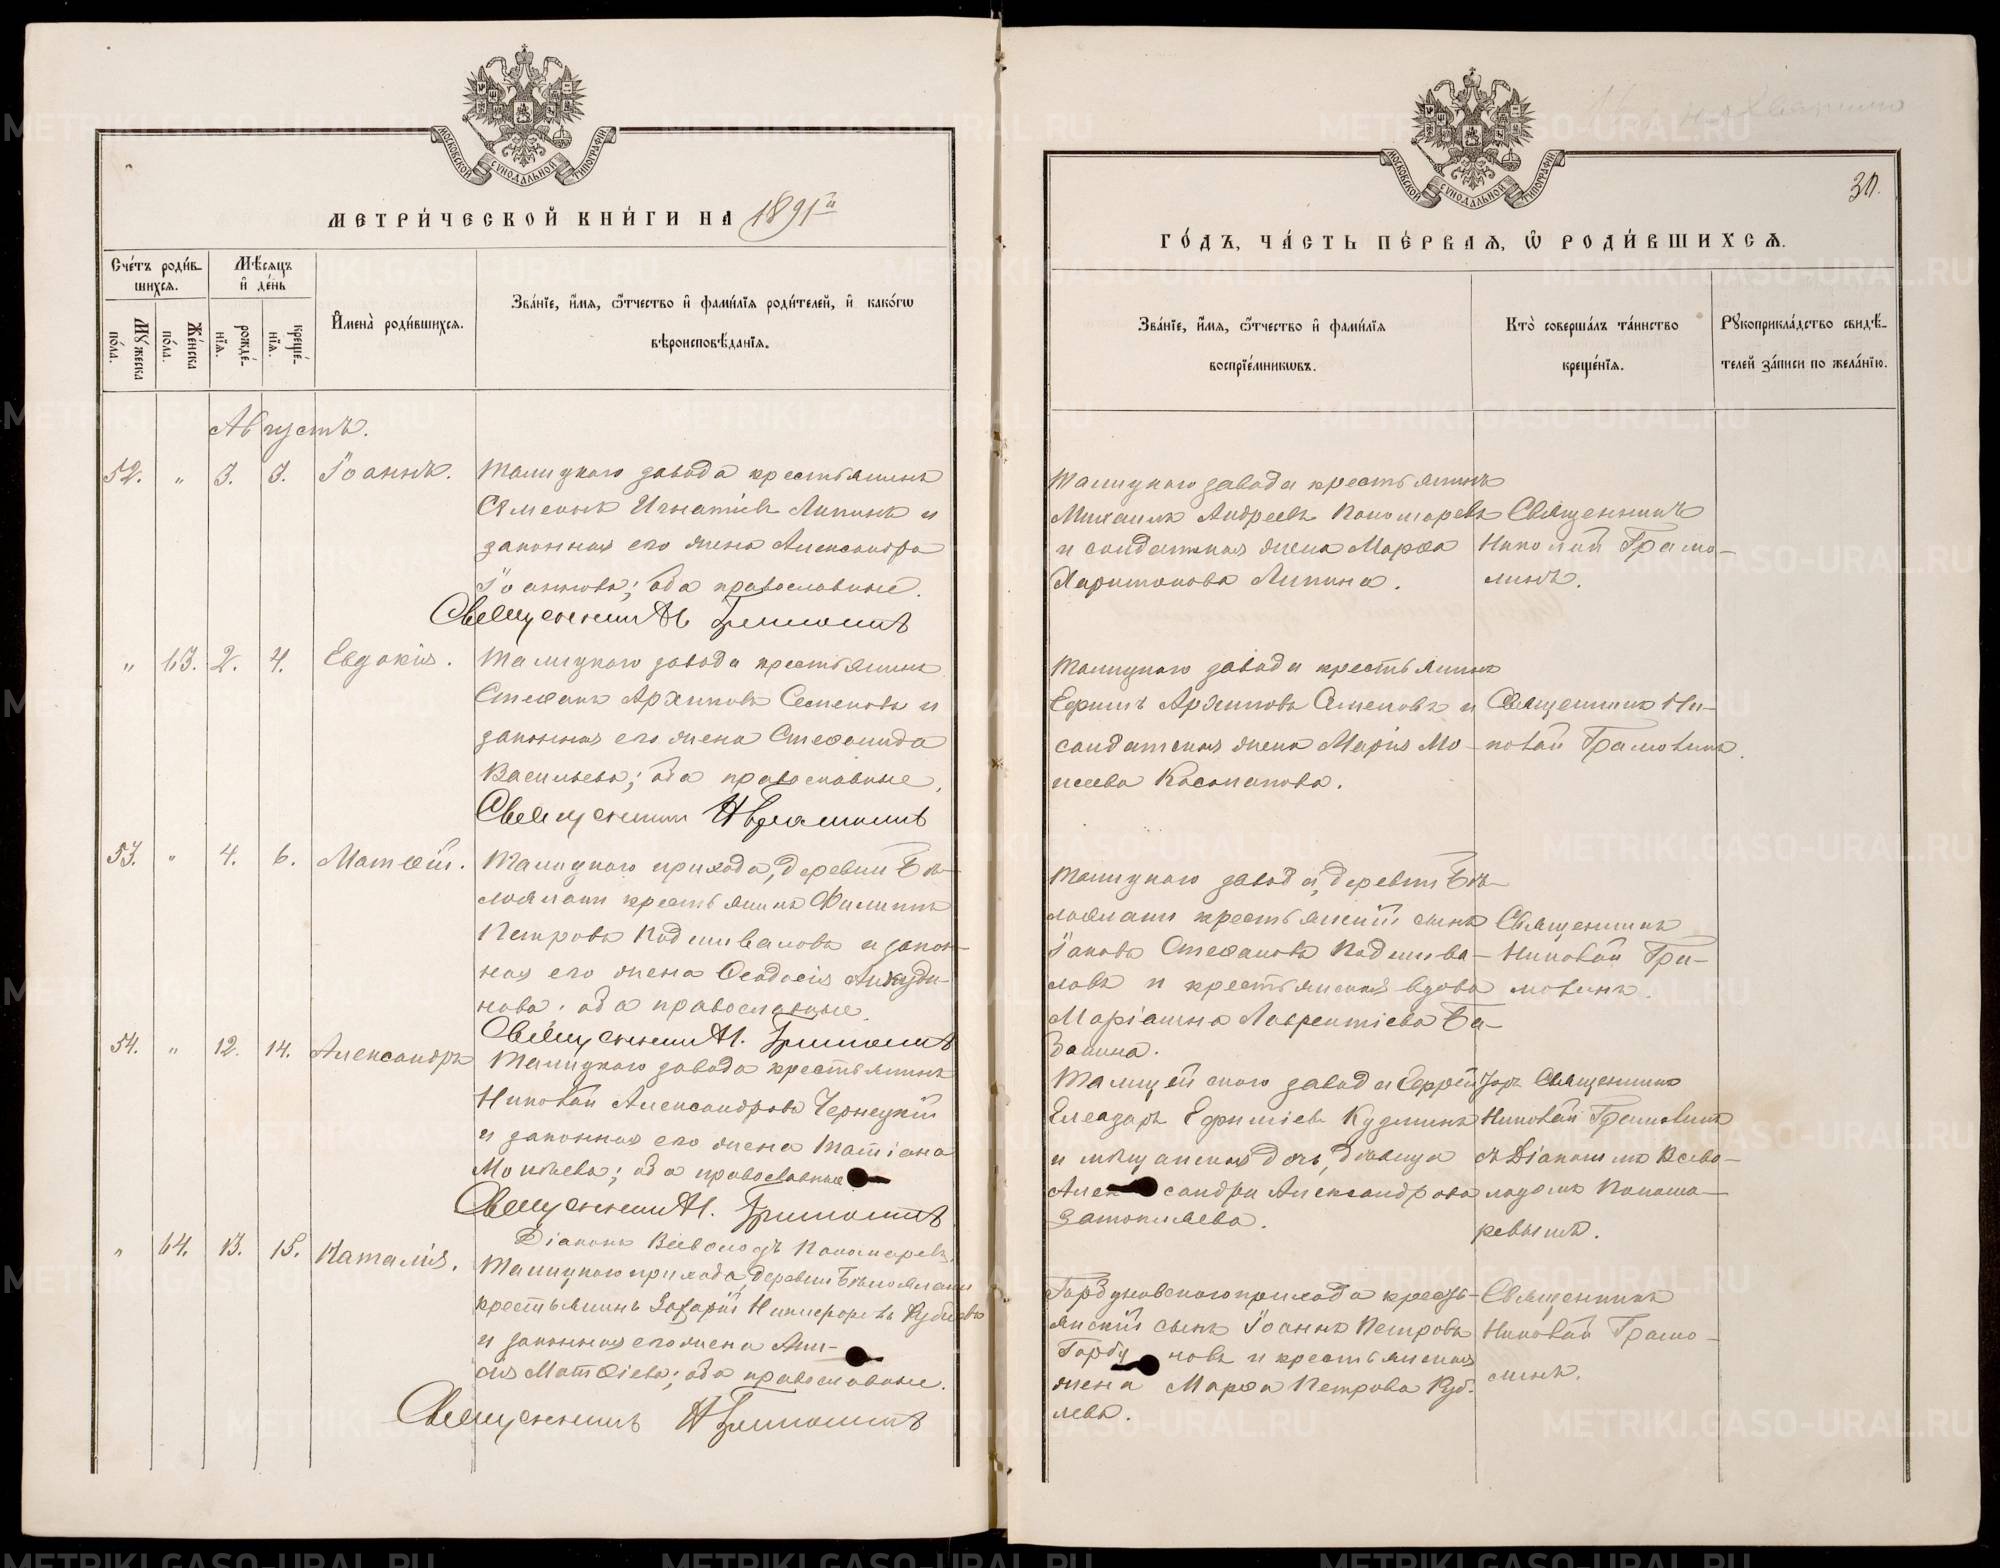 МОСКОВСКОЙ СУНОДАЛЬНОЙ ТИПОГРАФІИ
МЕТРИ́ЧЕСКОЙ КНИ́ГИ НА 1891й
Сче́тъ роди́вшихся.
Мѣ́сяцъ и҆ де́нь
Мꙋ́жеска по́ла.
Же́нска по́ла.
рожде́нїѧ.
креще́нїѧ.
И҆мена̀ роди́вшихсѧ.
Зва́нїе, и҆́мѧ, ѻ҆́тчество и҆ фами́лїѧ роди́телей, и҆ како́гѡ
вѣроисповѣ́данїѧ.
Августъ.
52. " 3. 3. Іоаннъ.
Талицкаго завода крестьянинъ
Сѵмеонъ Игнатіевъ Липинъ и
законная его жена Александра
Іоаннова; оба православные.
Священникъ Н. Грамолинъ
" 63. 2. 4. Евдокія.
Талицкаго завода крестьянинъ
Стефанъ Архиповъ Семеновъ и
законная его жена Стефанида
Васильева; оба православные.
Священникъ Н Грамолинъ
53. " 4. 6. Матѳій.
Талицкаго прихода, деревни Бѣ-
лоялани крестьянинъ Филиппъ
Петровъ Подшиваловъ и закон-
ная его жена Ѳеодосія Анкуди-
нова; оба православные.
Священникъ Н. Грамолинъ
54. " 12. 14. Александръ
Талицкаго завода крестьянинъ
Николай Александровъ Чернецкій
и законная его жена Татіана
Моисѣева; оба православные
Священникъ Н. Грамолинъ
Діаконъ Всеволодъ Пономаревъ.
" 64. 13. 15. Наталія.
Талицкаго прихода, деревни Бѣлоялани
крестьянинъ Захарій Никифоровъ
и законная его жена Ани-
сія Матѳіева; оба православные.
Священникъ Н Грамолинъ
МОСКОВСКОЙ СУНОДАЛЬНОЙ ТИПОГРАФІИ
30.
ГО́ДЪ, ЧА́СТЬ ПЕ́РВАѦ, Ѡ҆ РОДИ́ВШИХСѦ.
Зва́нїе, и҆́мѧ, ѻ҆́тчество и҆ фами́лїѧ
воспрїе́мникѡвъ.
Кто̀ соверша́лъ та́инство
креще́нїѧ.
Рꙋкоприкла́дство свидѣ́-
телей за́писи по жела́нїю.
Талицкаго завода крестьянинъ
Михаилъ Андреевъ Пономаревъ
и солдатская жена Марѳа
Харитонова Липина.
Священникъ
Николай Грамо-
линъ.
Талицкаго завода крестьянинъ
Ефимъ Архиповъ Семеновъ и
солдатская жена Марія Мо-
исеева Косолапова.
Священникъ Ни-
колай Грамолинъ.
Талицкаго завода, деревни Бѣ-
лоялани крестьянскій сынъ
Іаковъ Стефановъ Подшива-
ловъ и крестьянская вдова
Маріамна Лаврентіева Ба-
Священникъ
Николай Гра-
молинъ.
Талицкаго завода
Елеазаръ Ефиміевъ Кузминъ
и мѣщанская дочь, дѣвица
Александра Александрова
Затопляева.
Священникъ
Николай Грамолинъ
съ Діакономъ Всево-
лодомъ Понома-
ревымъ.
Горбуновскаго прихода кресть-
янскій сынъ Іоаннъ Петровъ
Горбуновъ и крестьянская
жена Марѳа Петрова
Священникъ
Николай Грамо-
линъ.
METRIKI.GASO-URAL.RU